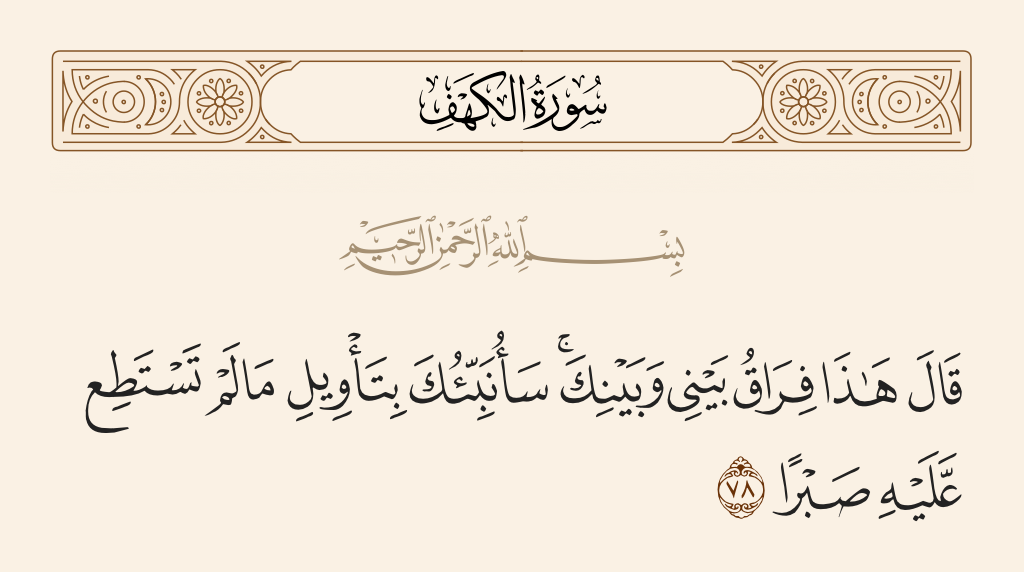 سُورَةُ الكَهْفِ
بِسْمِ ٱللَّهِ ٱلرَّحْمَٰنِ ٱلرَّحِيمِ
قَالَ هَٰذَا فِرَاقُ بَيْنِى وَبَيْنِكَ ۚ سَأُنَبِّئُكَ بِتَأْوِيلِ مَا لَمْ تَسْتَطِع
عَّلَيْهِ صَبْرًا ٧٨